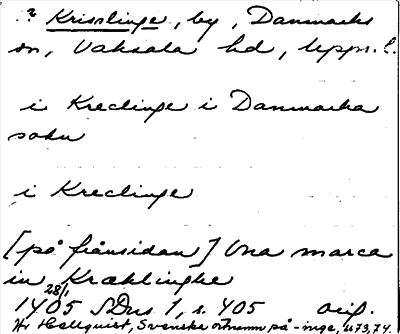 ? Krisslinge, by, Danmarks
sn, Vaksala hd, Upps. l.
i Kreclinge i Danmarka
sokn
i Kreclinge
[på frånsidan] Una marca
in Kræklinghe
28/1 1405 SDns 1, s. 405 orig.
Hellquist, Svenska ortnamn på -inge, s. 73, 74.